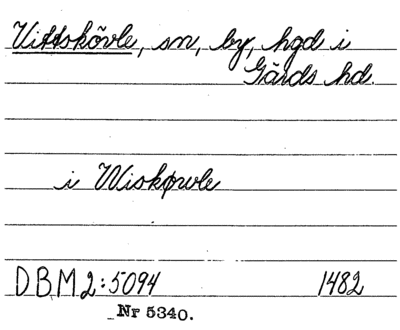 Vittskövle, sn, by, hgd i
Gärds hd.
i Wiskørvle
D.B.M.2:5094 1482
Nr 5340.